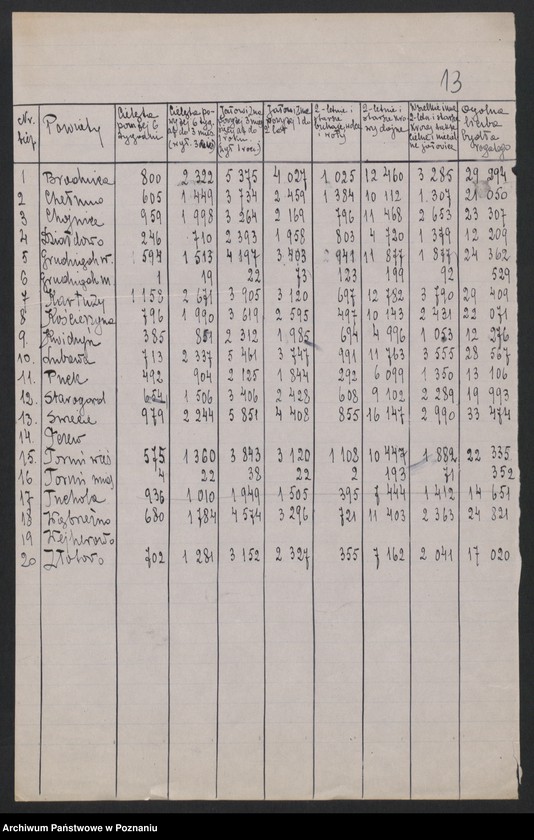 13
Nr. bież.
Powiaty
Cielęta poniżej 6 tygodni
Cielęta powyżej 6 tyg. aż do 3 mies.
Jałowizna powyżej 3 mies. aż do 1 roku
Jałowizna powyżej 1 do 2 lat
2-letnie i starsze buhaje, wolce i woły
2-letnie i starsze krowy dojne
Ogólna liczba bydła rogatego
1 Brodnica 800 2 322 5 375 4 027 1 025 12 460 3 285 29 294
2 Chełmno 605 1 449 3 734 2 459 1 384 10 112 1.307 21 050
3 Chojnice 959 1 998 3 264 2 169 796 11 468 2 653 23 307
4 Działdowo 246 710 2 393 1 958 803 4 720 1 379 12 209
5 Grudziądz w. 594 1 513 4 197 3 403 2 941 11 877 1 877 24 362
6 Grudziądz m. 1 19 22 73 123 199 92 529
7 Kartuzy 1 153 2 671 3 905 3 120 697 12 782 3 790 29 409
8 Kościerzyna 796 1 990 3 619 2 595 497 10 143 2 431 22 071
9. Kwidzyn 385 2 312 1 985 694 4 996 1 053 12 276
10. Lubawa 713 2 337 5 461 3 747 991 11 763 3 555 28 567
11. Puck 492 904 2 125 1 844 292 6 099 1 350 13 106
12. Starogard 654 1 506 3 406 2 428 608 9 102 2 289 19 993
13. Świecie 979 2 244 5 851 4 408 855 16 147 2 990 33 474
14. Tczew
15. Toruń wieś 575 1 360 3 843 3 120 1 108 10 447 1 882 22 335
16 Toruń m. 4 22 38 22 2 193 71 352
17 Tuchola 936 1 010 1 949 1 505 395 7 444 1 412 14 651
18 Wąbrzeźno 680 1 784 4 574 3 296 721 11 403 2 363 24 821
19 Wejherowo
20 Złotowo 702 1 281 3 152 2 327 355 7 162 2 041 17 020
Archiwum Państwowe w Poznaniu